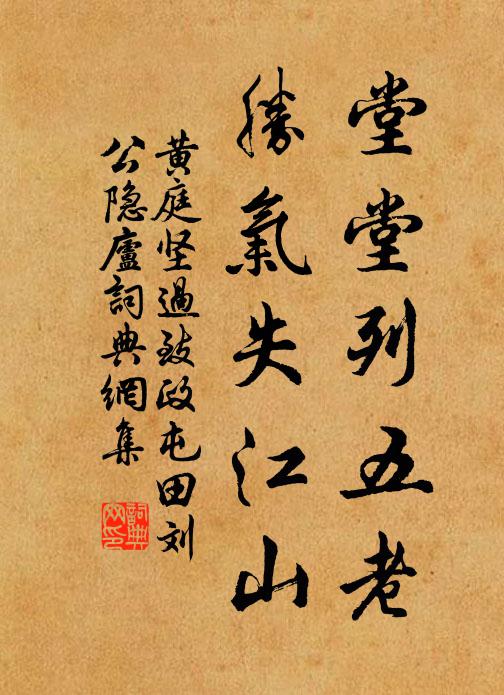 堂堂列五老
勝氣失江山
黄庭坚過致政屯田刘
公隐廬詞典網集
詞典網印